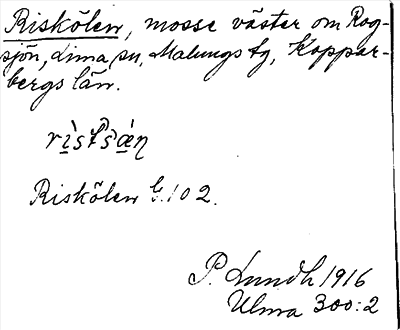 Riskölen, mosse väster om Rog-
sjön, Lima sn, Malungs tg, Koppar-
bergs län.
Riskölen G. 102.
P. Lundh 1916
Ulma 300:2